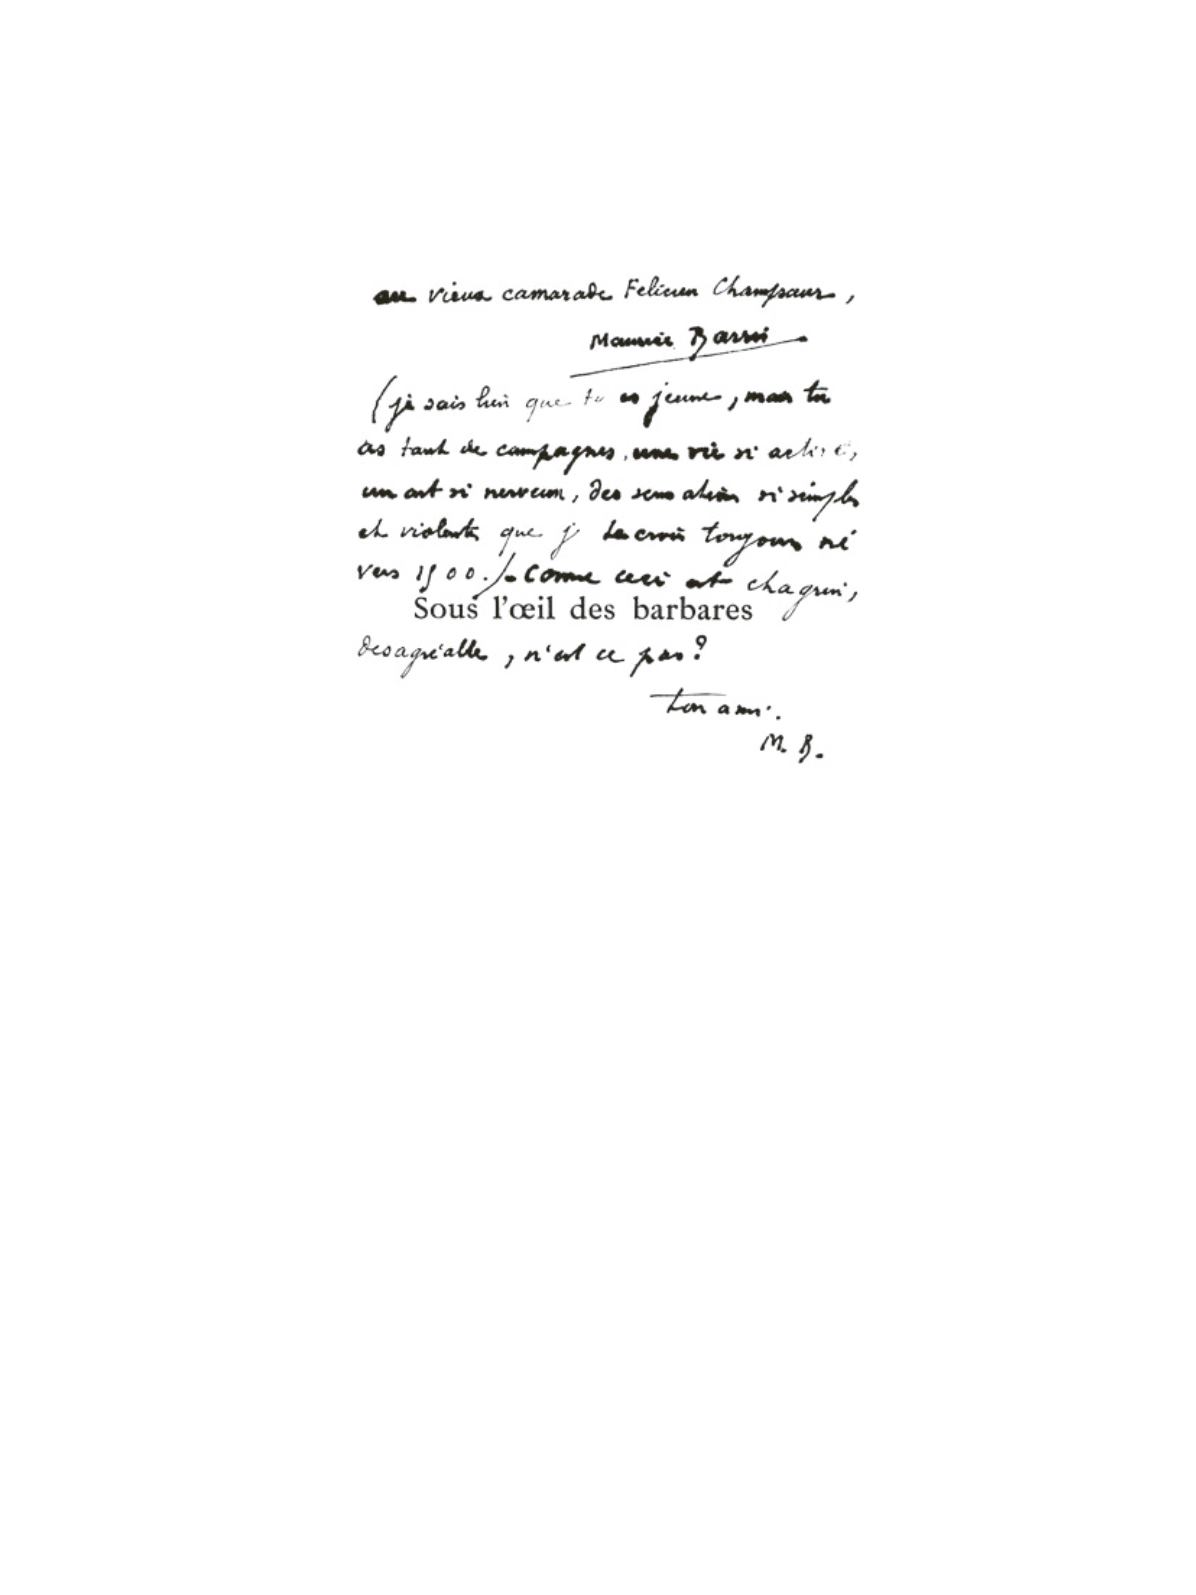 au vieux camarade Felicien Champsaur,
Maurice Barrès
(je sais bien que tu es jeune, mais tu
as tant de campagnes, une vie si active,
un art si nerveux, des sensations si simples
et violentes que je te crois toujours né
vers 1500.) - Comme ceci est chagrin,
Sous l'œil des barbares
desagréable, n'est ce pas?
ton ami.
M. B.